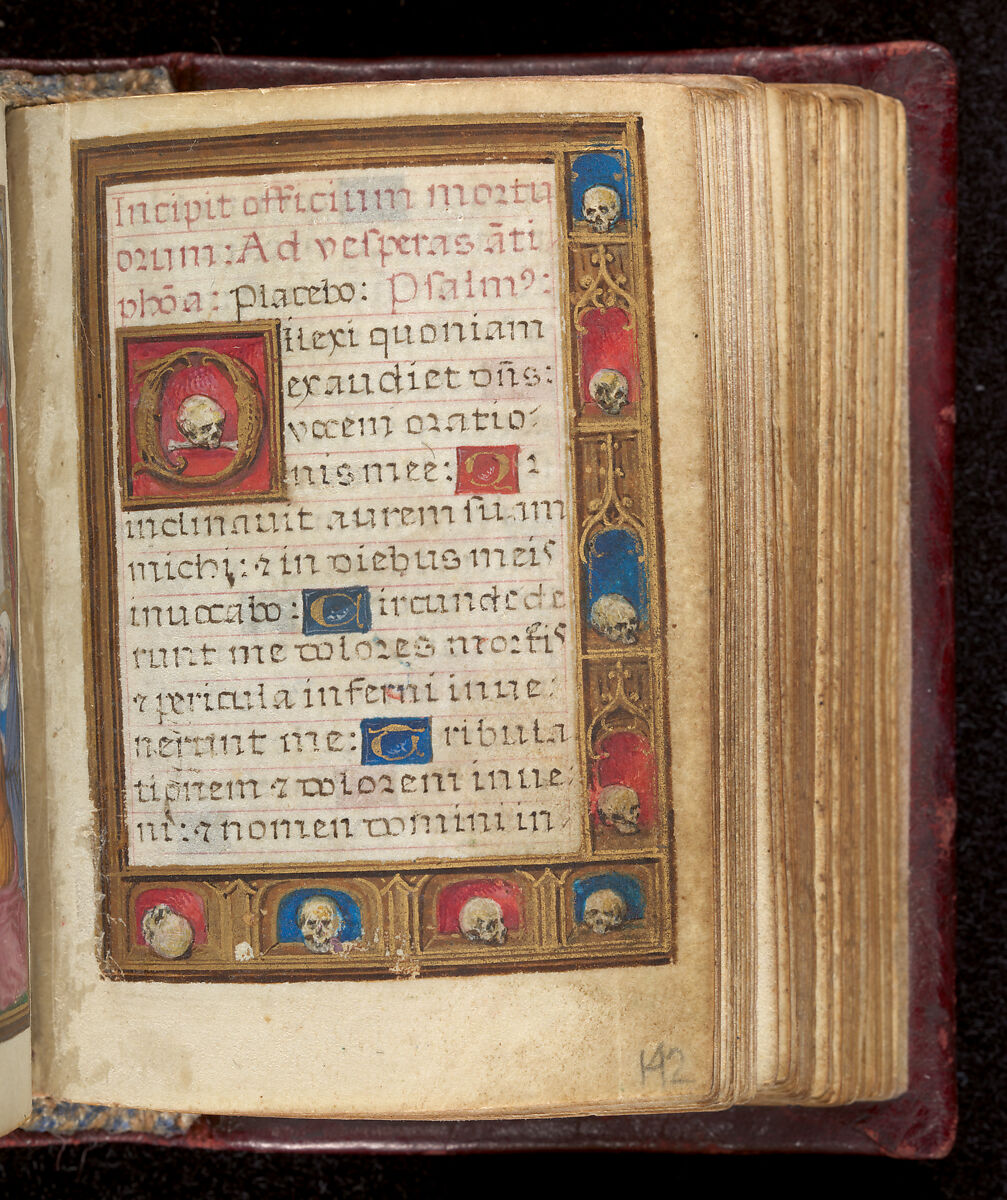 Incipit officium mortu
orum: Ad vesperas ãti
phõa: Placebo: Psalmꝰ:
Dilexi quoniam
exaudiet dñs:
vocem oratio
nis mee: Qꝛ
inclinavit aurem suam
michi: ⁊ in diebus meis
invocabo: Circundede
runt me dolores mortis
⁊ pericula inferni inve
nerunt me: Tribula
tionem ⁊ dolorem inve
ni: ⁊ nomen domini in
142